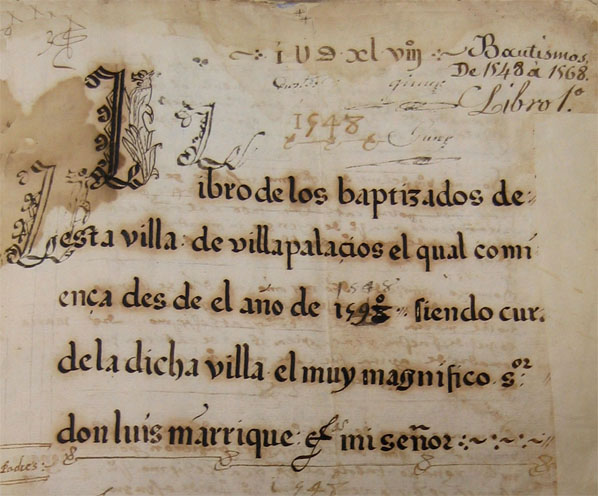 Bautismos,
De 1548 à 1568.
Libro 1.º
1548
Libro de los baptizados de
esta villa de villapalacios el qual comi
ença des de el año de 1548 siendo cur.
de la dicha villa el muy magnifico s.or
don luis manrrique mi señor
1548